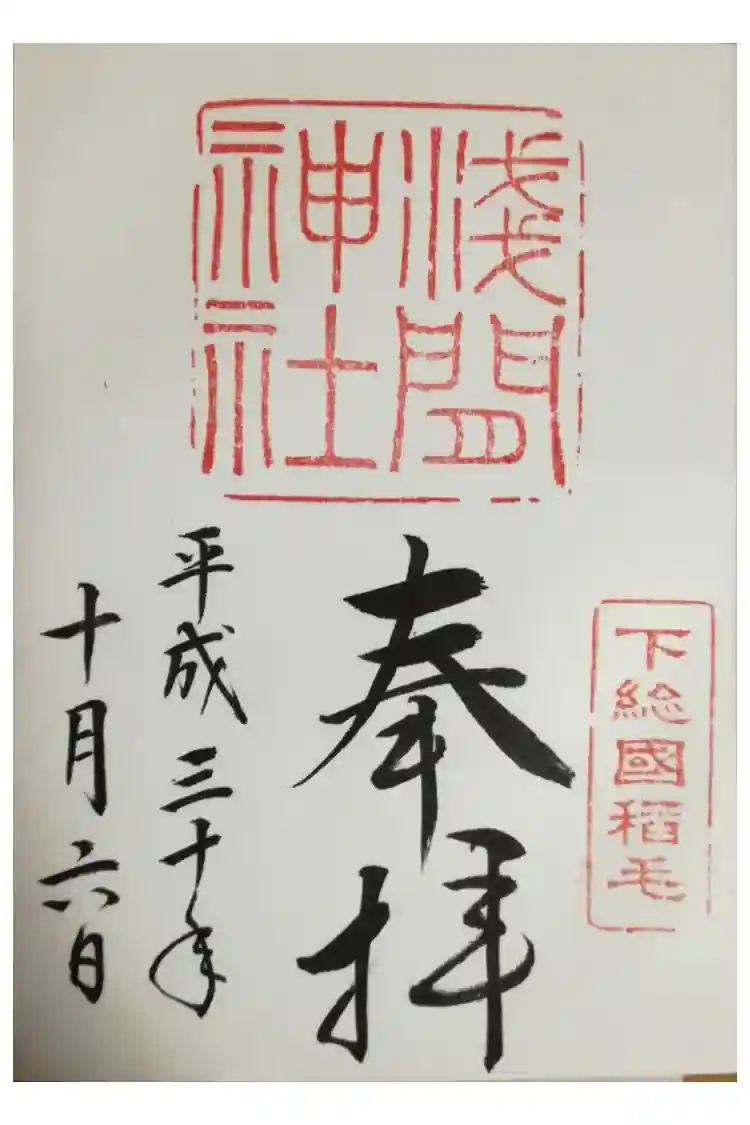 下総國稻毛
淺間
神社
奉拝
平成三十年
十月六日